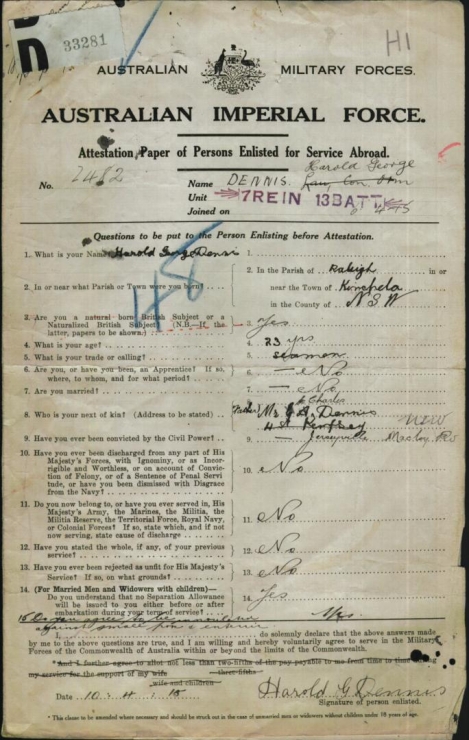 D
33281
H1
AUSTRALIAN MILITARY FORCES.
AUSTRALIAN IMPERIAL FORCE.
Attestation Paper of Persons Enlisted for Service Abroad.
Harold George
No. 2482 Name DENNIS.
Unit 7 REIN 13 BATT
Joined on
Questions to be put to the Person Enlisting before Attestation.
148
1. What is your Name? Harold George Dennis 1.
2. In or near what Parish or Town were you born? 2. In the Parish of Raleigh in or
near the Town of
in the County of N S W
3. Are you a natural born British Subject or a
Naturalized British Subject? (N.B.—If the
latter, papers to be shown.) 3. Yes
4. What is your age? 4. 23 yrs
5. What is your trade or calling? 5. seaman
6. Are you, or have you been, an Apprentice? If so,
where, to whom, and for what period? 6. — No
7. Are you married? 7. — No
8. Who is your next of kin? (Address to be stated) 8. Father Charles
Dennis
NSW
9. Have you ever been convicted by the Civil Power? 9. — Jerseyville Macleay Riv
10. Have you ever been discharged from any part of His
Majesty's Forces, with Ignominy, or as Incor-
rigible and Worthless, or on account of Conviction
of Felony, or of a Sentence of Penal Servi-
tude, or have you been dismissed with Disgrace
from the Navy? 10. No
11. Do you now belong to, or have you ever served in, His
Majesty's Army, the Marines, the Militia, the
Militia Reserve, the Territorial Force, Royal Navy,
or Colonial Forces? If so, state which, and if not
now serving, state cause of discharge 11. No
12. Have you stated the whole, if any, of your previous
service? 12. No
13. Have you ever been rejected as unfit for His Majesty's
Service? If so, on what grounds? 13. No
14. (For Married Men and Widowers with children)—
Do you understand that no Separation Allowance
will be issued to you either before or after
embarkation during your term of service? 14. Yes
15 Do you agree to be inoculated
against small pox & enteric Yes
I, do solemnly declare that the above answers made
by me to the above questions are true, and I am willing and hereby voluntarily agree to serve in the Military
Forces of the Commonwealth of Australia within or beyond the limits of the Commonwealth.
*And I further agree to allot not less than two-fifths of the pay payable to me from time to time during
my service for the support of my wife
three-fifths wife and children
Date 10. 4. 15 Harold G Dennis
Signature of person enlisted.
* This clause to be amended where necessary and should be struck out in the case of unmarried men or widowers without children under 18 years of age.